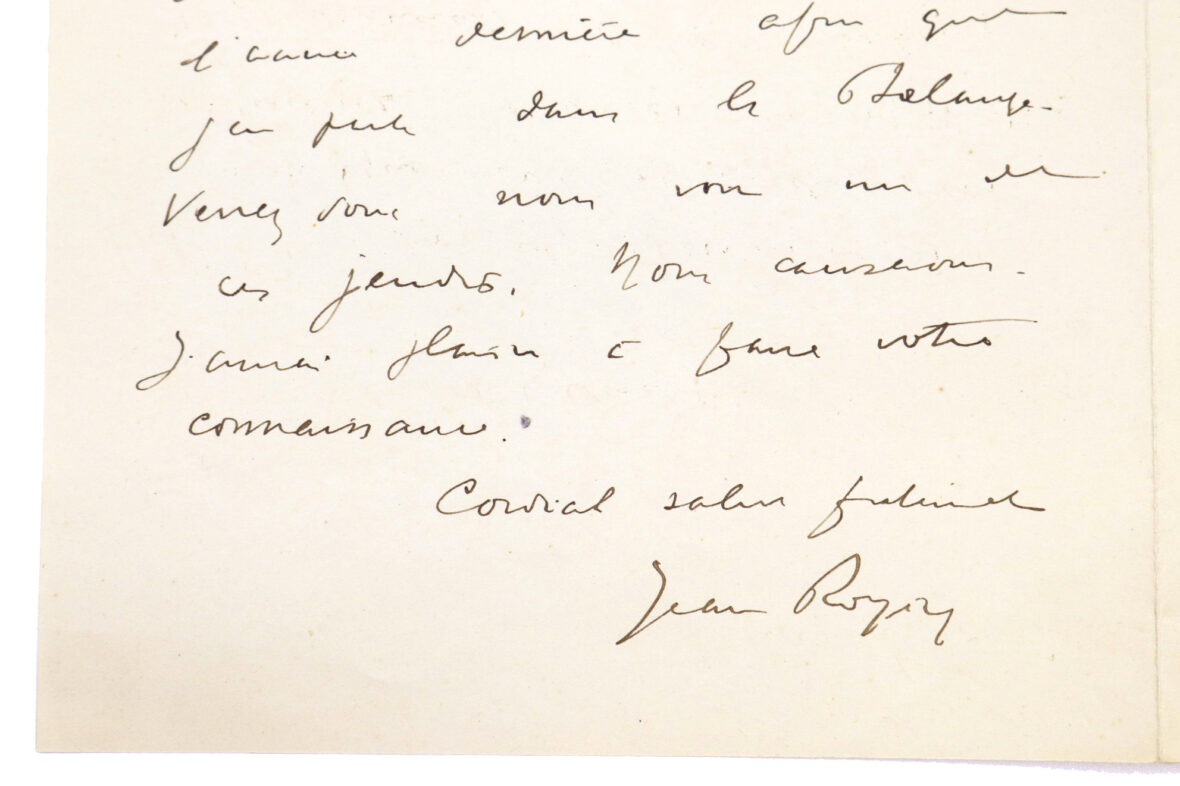 l'année dernière afin que
j'en parle dans la Balance.
Venez donc nous voir un de
ces jeudis. Nous causerons.
J'aurai plaisir à faire votre
connaissance.
Cordial salut
Jean Royère